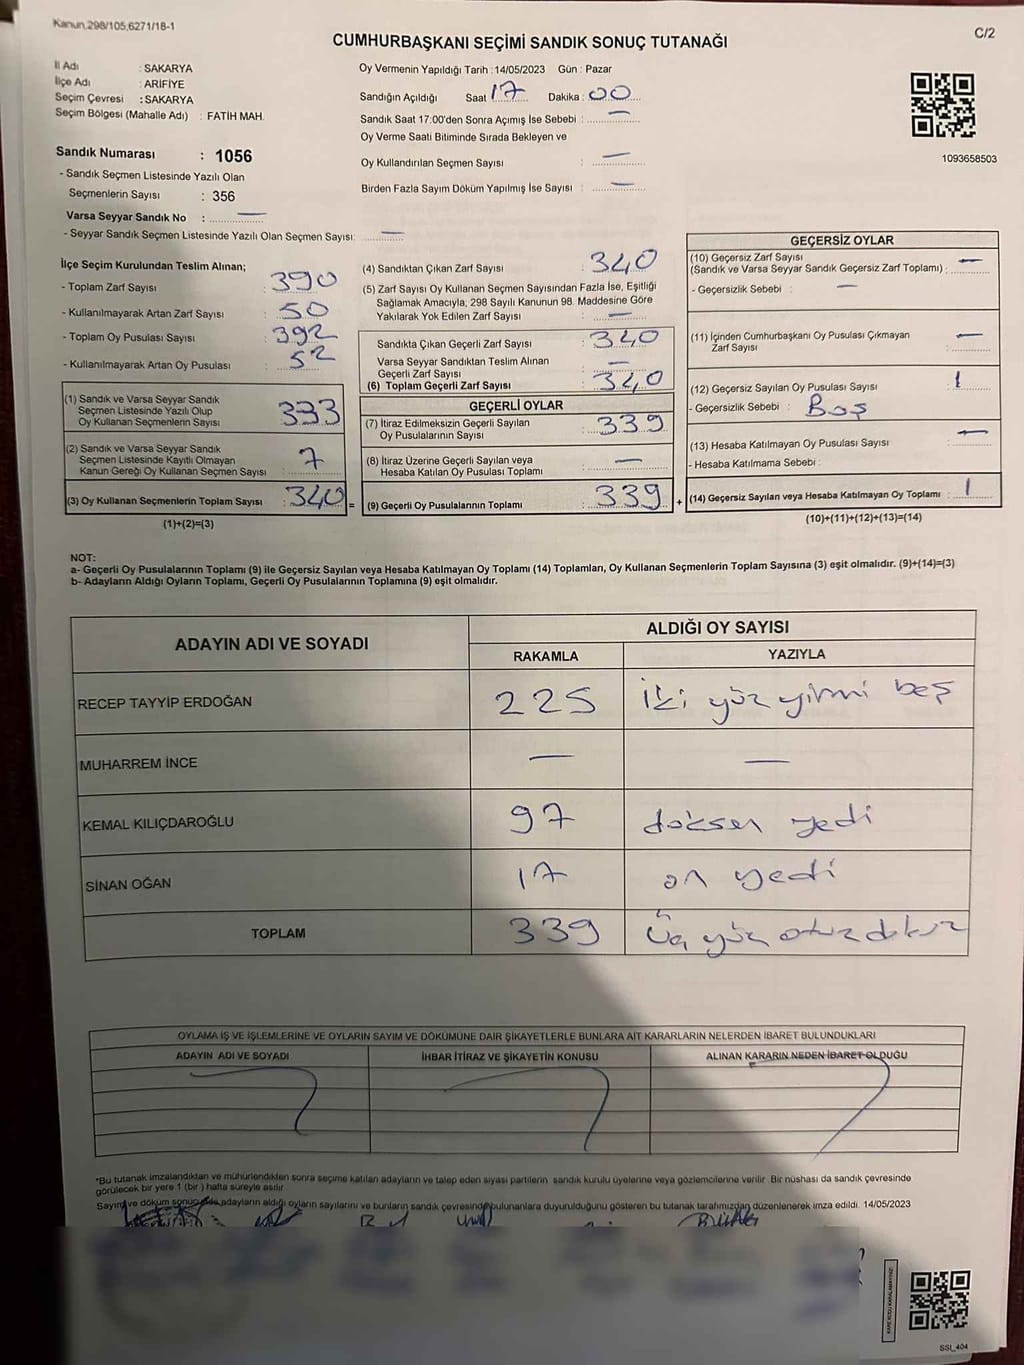 Kanun.298/105,6271/18-1
C/2
CUMHURBAŞKANI SEÇİMİ SANDIK SONUÇ TUTANAĞI
İl Adı : SAKARYA
İlçe Adı : ARİFİYE
Seçim Çevresi : SAKARYA
Seçim Bölgesi (Mahalle Adı) : FATİH MAH.
Sandık Numarası : 1056
- Sandık Seçmen Listesinde Yazılı Olan
Seçmenlerin Sayısı : 356
Varsa Seyyar Sandık No : —
- Seyyar Sandık Seçmen Listesinde Yazılı Olan Seçmen Sayısı: —
Oy Vermenin Yapıldığı Tarih :14/05/2023 Gün : Pazar
Sandığın Açıldığı Saat 17 Dakika : 00
Sandık Saat 17:00'den Sonra Açımış İse Sebebi : —
Oy Verme Saati Bitiminde Sırada Bekleyen ve
Oy Kullandırılan Seçmen Sayısı : —
Birden Fazla Sayım Döküm Yapılmış İse Sayısı : —
1093658503
İlçe Seçim Kurulundan Teslim Alınan;
- Toplam Zarf Sayısı : 390
- Kullanılmayarak Artan Zarf Sayısı : 50
- Toplam Oy Pusulası Sayısı : 392
- Kullanılmayarak Artan Oy Pusulası : 52
(1) Sandık ve Varsa Seyyar Sandık
Seçmen Listesinde Yazılı Olup
Oy Kullanan Seçmenlerin Sayısı : 333
(2) Sandık ve Varsa Seyyar Sandık
Seçmen Listesinde Kayıtlı Olmayan
Kanun Gereği Oy Kullanan Seçmen Sayısı : 7
(3) Oy Kullanan Seçmenlerin Toplam Sayısı : 340 =
(1)+(2)=(3)
(4) Sandıktan Çıkan Zarf Sayısı : 340
(5) Zarf Sayısı Oy Kullanan Seçmen Sayısından Fazla İse, Eşitliği
Sağlamak Amacıyla, 298 Sayılı Kanunun 98. Maddesine Göre
Yakılarak Yok Edilen Zarf Sayısı : —
Sandıkta Çıkan Geçerli Zarf Sayısı : 340
Varsa Seyyar Sandıktan Teslim Alınan
Geçerli Zarf Sayısı : —
(6) Toplam Geçerli Zarf Sayısı : 340
GEÇERLİ OYLAR
(7) İtiraz Edilmeksizin Geçerli Sayılan
Oy Pusulalarının Sayısı : 339
(8) İtiraz Üzerine Geçerli Sayılan veya
Hesaba Katılan Oy Pusulası Toplamı : —
(9) Geçerli Oy Pusulalarının Toplamı : 339 +
GEÇERSİZ OYLAR
(10) Geçersiz Zarf Sayısı
(Sandık ve Varsa Seyyar Sandık Geçersiz Zarf Toplamı) : —
- Geçersizlik Sebebi : —
(11) İçinden Cumhurbaşkanı Oy Pusulası Çıkmayan
Zarf Sayısı : —
(12) Geçersiz Sayılan Oy Pusulası Sayısı : 1
- Geçersizlik Sebebi : Boş
(13) Hesaba Katılmayan Oy Pusulası Sayısı : —
- Hesaba Katılmama Sebebi :
(14) Geçersiz Sayılan veya Hesaba Katılmayan Oy Toplamı : 1
(10)+(11)+(12)+(13)=(14)
NOT:
a- Geçerli Oy Pusulalarının Toplamı (9) ile Geçersiz Sayılan veya Hesaba Katılmayan Oy Toplamı (14) Toplamları, Oy Kullanan Seçmenlerin Toplam Sayısına (3) eşit olmalıdır. (9)+(14)=(3)
b- Adayların Aldığı Oyların Toplamı, Geçerli Oy Pusulalarının Toplamına (9) eşit olmalıdır.
ADAYIN ADI VE SOYADI
ALDIĞI OY SAYISI
RAKAMLA YAZIYLA
RECEP TAYYİP ERDOĞAN 225 İki yüz yirmi beş
MUHARREM İNCE — —
KEMAL KILIÇDAROĞLU 97 doksan yedi
SİNAN OĞAN 17 on yedi
TOPLAM 339 Üç yüz otuz dokuz
OYLAMA İŞ VE İŞLEMLERİNE VE OYLARIN SAYIM VE DÖKÜMÜNE DAİR ŞİKAYETLERLE BUNLARA AİT KARARLARIN NELERDEN İBARET BULUNDUKLARI
ADAYIN ADI VE SOYADI İHBAR İTİRAZ VE ŞİKAYETİN KONUSU ALINAN KARARIN NEDEN İBARET OLDUĞU
*Bu tutanak imzalandıktan ve mühürlendikten sonra seçime katılan adayların ve talep eden siyasi partilerin sandık kurulu üyelerine veya gözlemcilerine verilir. Bir nüshası da sandık çevresinde
görülecek bir yere 1 (bir) hafta süreyle asılır.
Sayım ve döküm adayların aldığı oyların sayılarını ve bunların sandık çevresinde bulunanlara duyurulduğunu gösteren bu tutanak tarafımızdan düzenlenerek imza edildi. 14/05/2023
SSİ_404